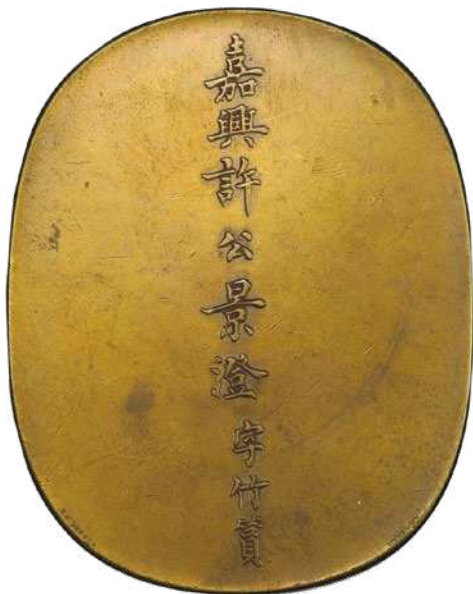 嘉興許公景澄字竹篔